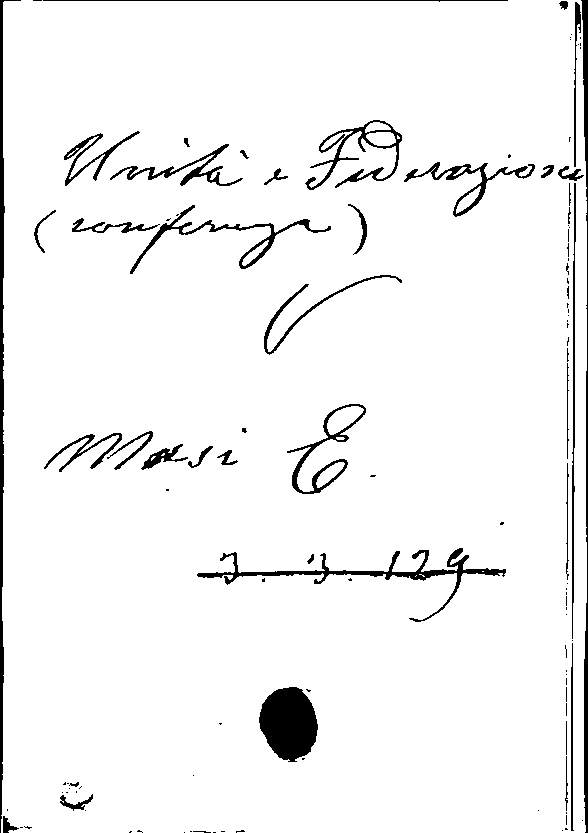 Unità e Federazione
(conferenza)
Masi E.
3. 3. 129